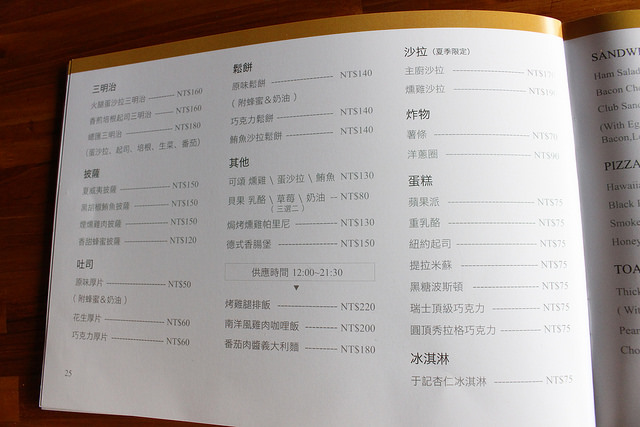 三明治
火腿蛋沙拉三明治 NT$160
香煎培根起司三明治 NT$160
總匯三明治 NT$180
(蛋沙拉、起司、培根、生菜、番茄)
披薩
夏威夷披薩 NT$150
黑胡椒鮪魚披薩 NT$150
煙燻雞肉披薩 NT$150
香甜蜂蜜披薩 NT$120
吐司
原味厚片 NT$50
(附蜂蜜&奶油)
花生厚片 NT$60
巧克力厚片 NT$60
25
鬆餅
原味鬆餅 NT$140
(附蜂蜜&奶油)
巧克力鬆餅 NT$140
鮪魚沙拉鬆餅 NT$140
其他
可頌 燻雞 \ 蛋沙拉 \ 鮪魚 NT$130
貝果 乳酪 \ 草莓 \ 奶油 NT$80
(三選二)
焗烤燻雞帕里尼 NT$130
德式香腸堡 NT$150
供應時間 12:00~21:30
烤雞腿排飯 NT$220
南洋風雞肉咖哩飯 NT$200
番茄肉醬義大利麵 NT$180
沙拉 (夏季限定)
主廚沙拉
燻雞沙拉
炸物
薯條 NT$70
洋蔥圈 NT$90
蛋糕
蘋果派 NT$75
重乳酪 NT$75
紐約起司 NT$75
提拉米蘇 NT$75
黑糖波斯頓 NT$75
瑞士頂級巧克力 NT$75
圓頂秀拉格巧克力 NT$75
冰淇淋
于記杏仁冰淇淋 NT$75
Ham Salad
Bacon
Club
(With
PIZZA
Black